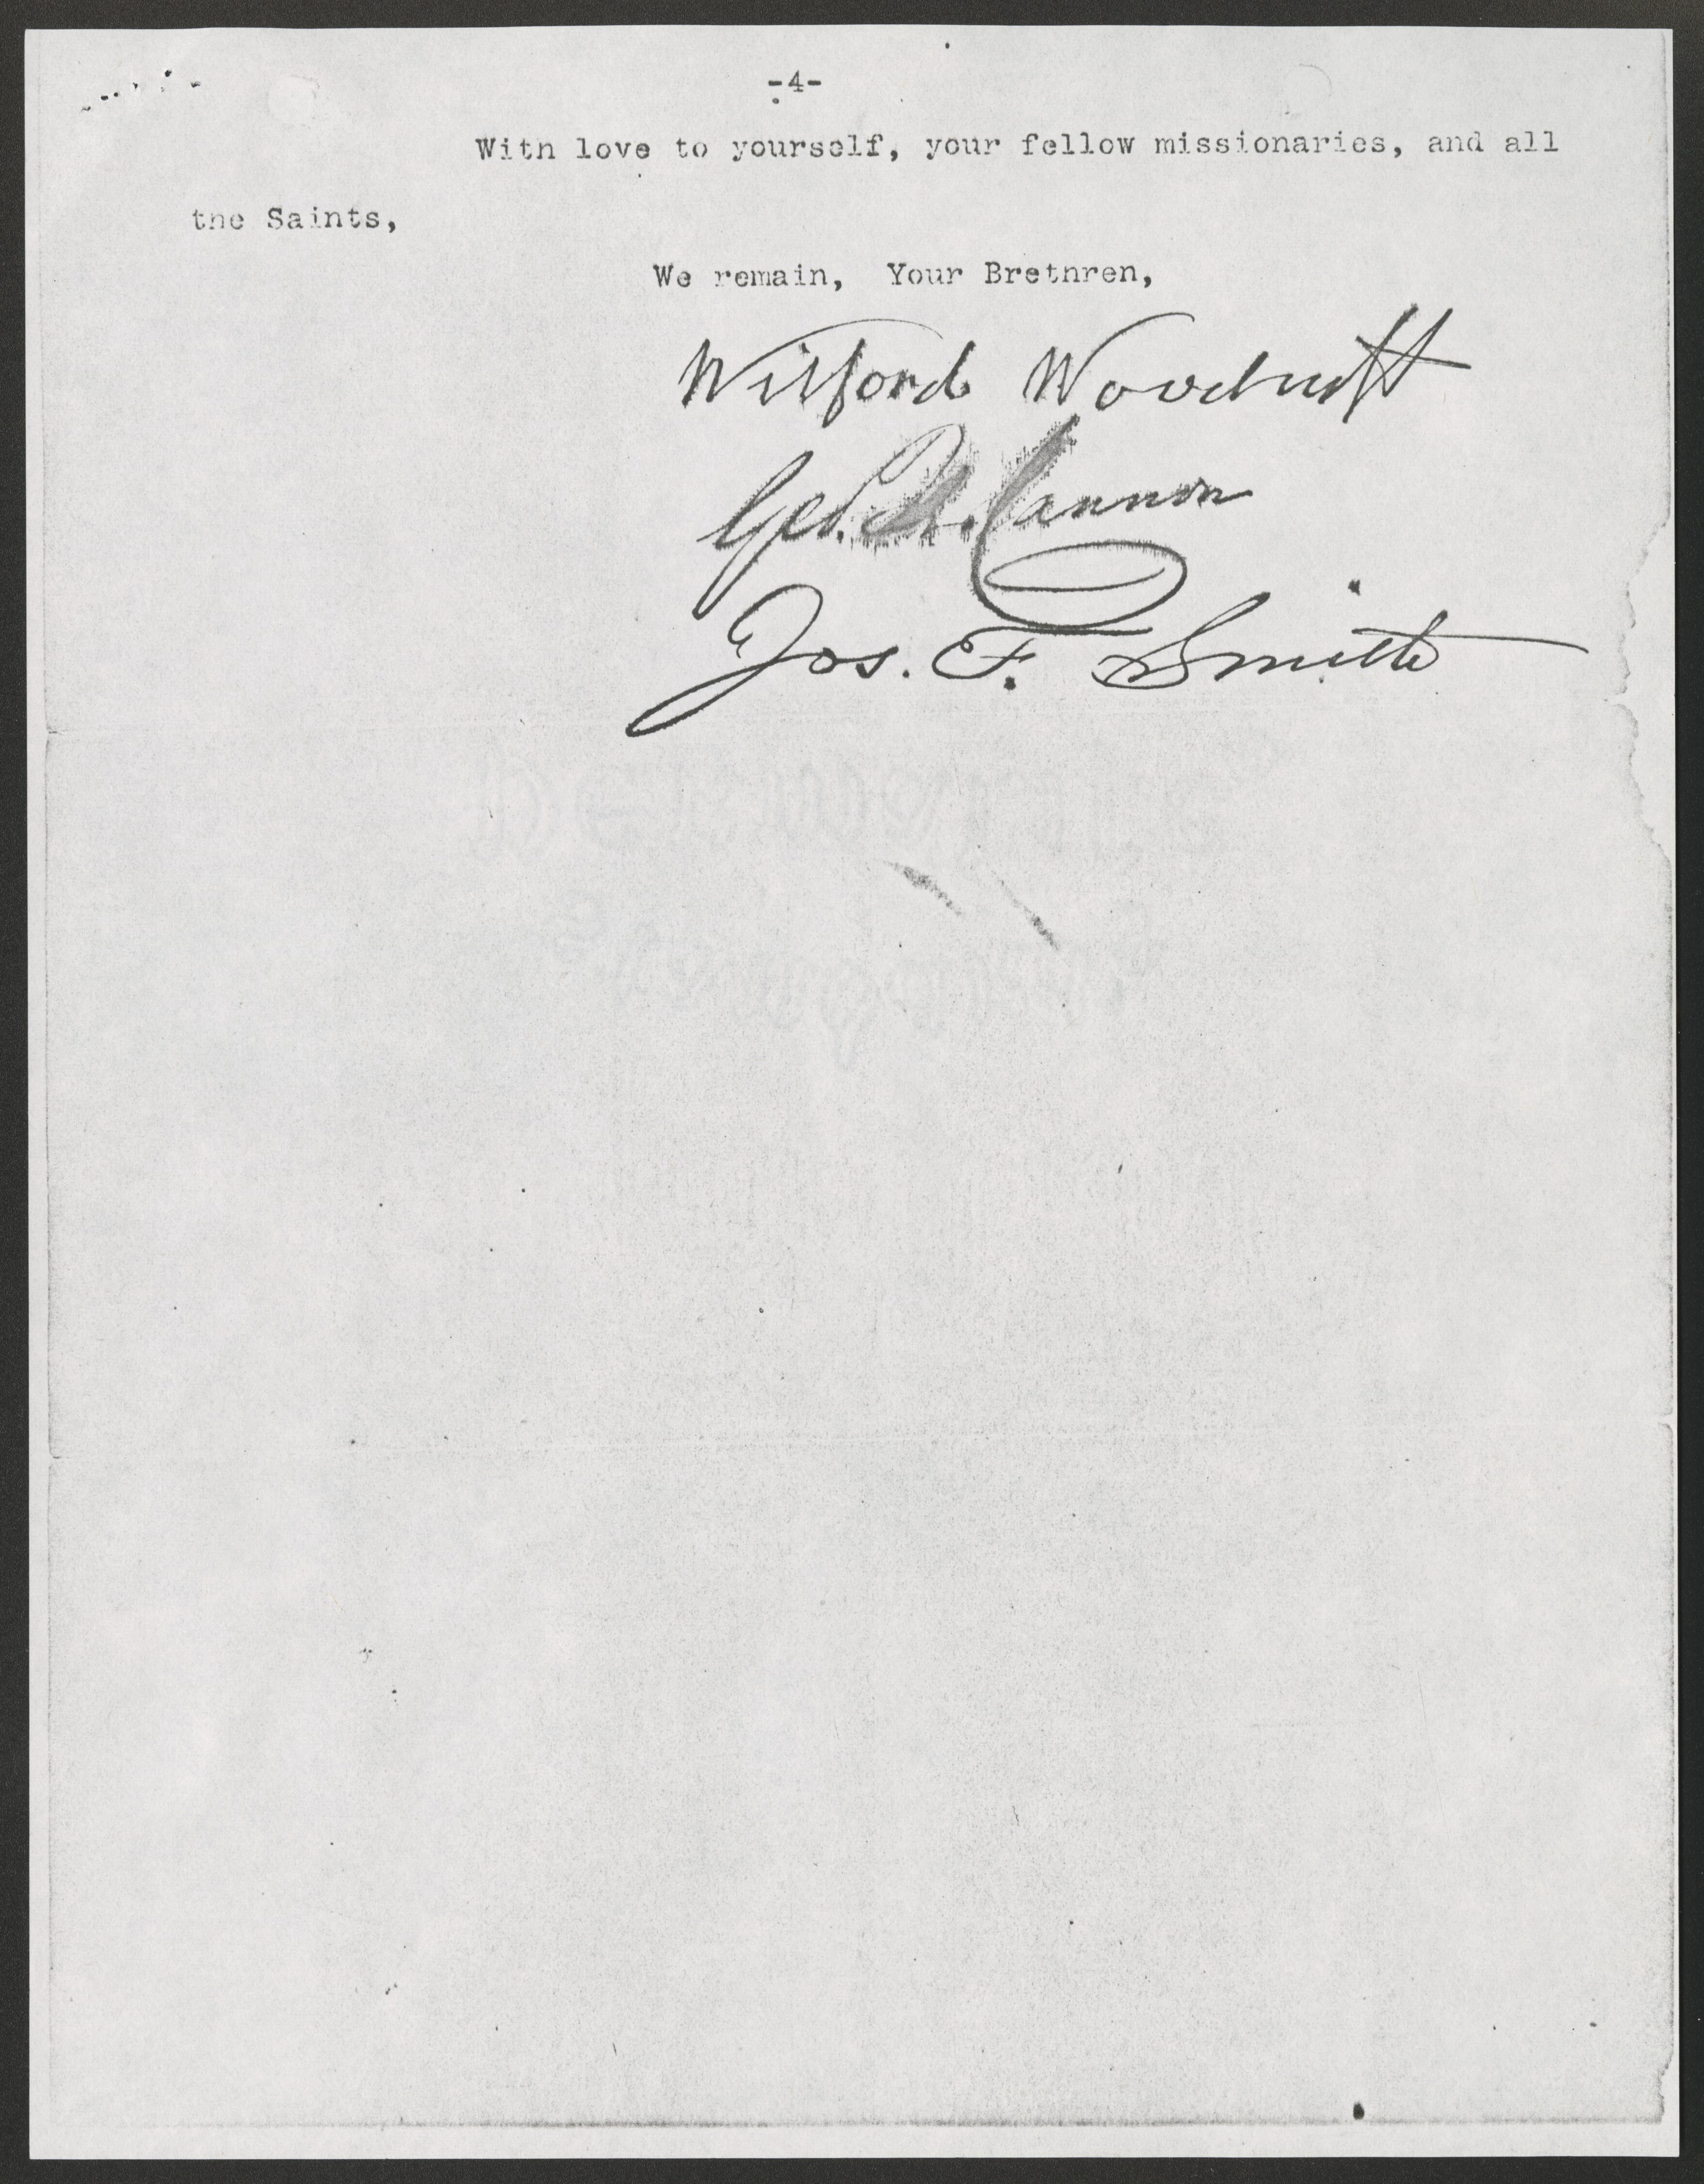 -4-
With love to yourself, your fellow missionaries, and all
the Saints,
We remain, Your Brethren,
Wilford Woodruff
Geo. Q. Cannon
Jos. F. Smith